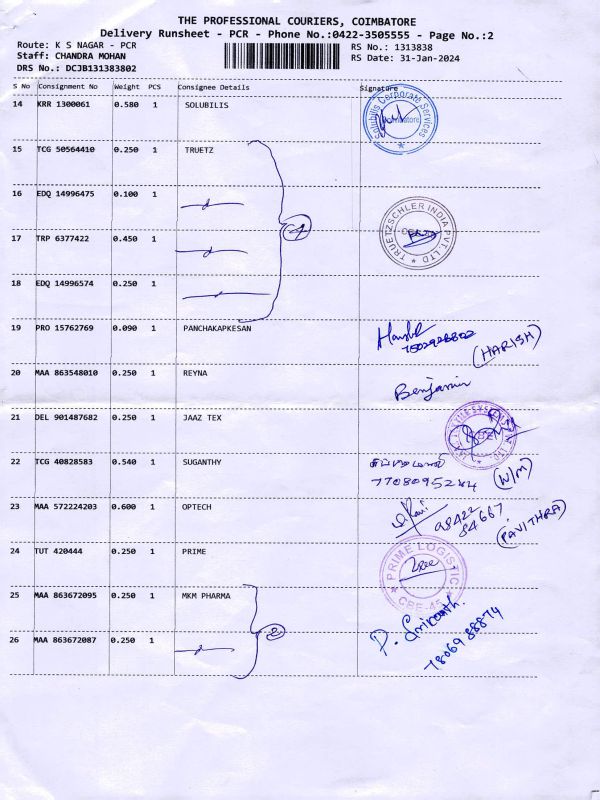 THE PROFESSIONAL COURIERS, COIMBATORE
Delivery Runsheet - PCR - Phone No.:0422-3505555 - Page No.:2
Route: K S NAGAR - PCR
RS No.: 1313838
Staff: CHANDRA MOHAN
RS Date: 31-Jan-2024
DRS No.: DCJB131383802
S No Consignment No Weight PCS Consignee Details Signature
14 KRR 1300061 0.580 1 SOLUBILIS
Solubilis Corporate Services
Coimbatore
15 TCG 50564410 0.250 1 TRUETZ
16 EDQ 14996475 0.100 1
4
TRUETZSCHLER INDIA PVT. LTD
17 TRP 6377422 0.450 1
18 EDQ 14996574 0.250 1
19 PRO 15762769 0.090 1 PANCHAKAPKESAN
(HARISH)
20 MAA 863548010 0.250 1 REYNA
Benjamin
21 DEL 901487682 0.250 1 JAAZ TEX
22 TCG 40828583 0.540 1 SUGANTHY
(W/M)
23 MAA 572224203 0.600 1 OPTECH
98422
84667
(PAVITHRA)
24 TUT 420444 0.250 1 PRIME
PRIME LOGISTIC
CBE-45
25 MAA 863672095 0.250 1 MKM PHARMA
2
26 MAA 863672087 0.250 1
7806988874